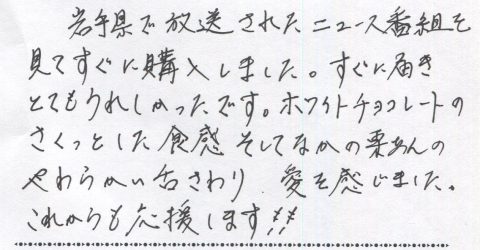 岩手県で放送されたニュース番組を
見てすぐに購入しました。すぐに届き
とてもうれしかったです。ホワイトチョコレートの
さくっとした食感そしてなかの栗あんの
やわらかい舌さわり、愛を感じました。
これからも応援します!!